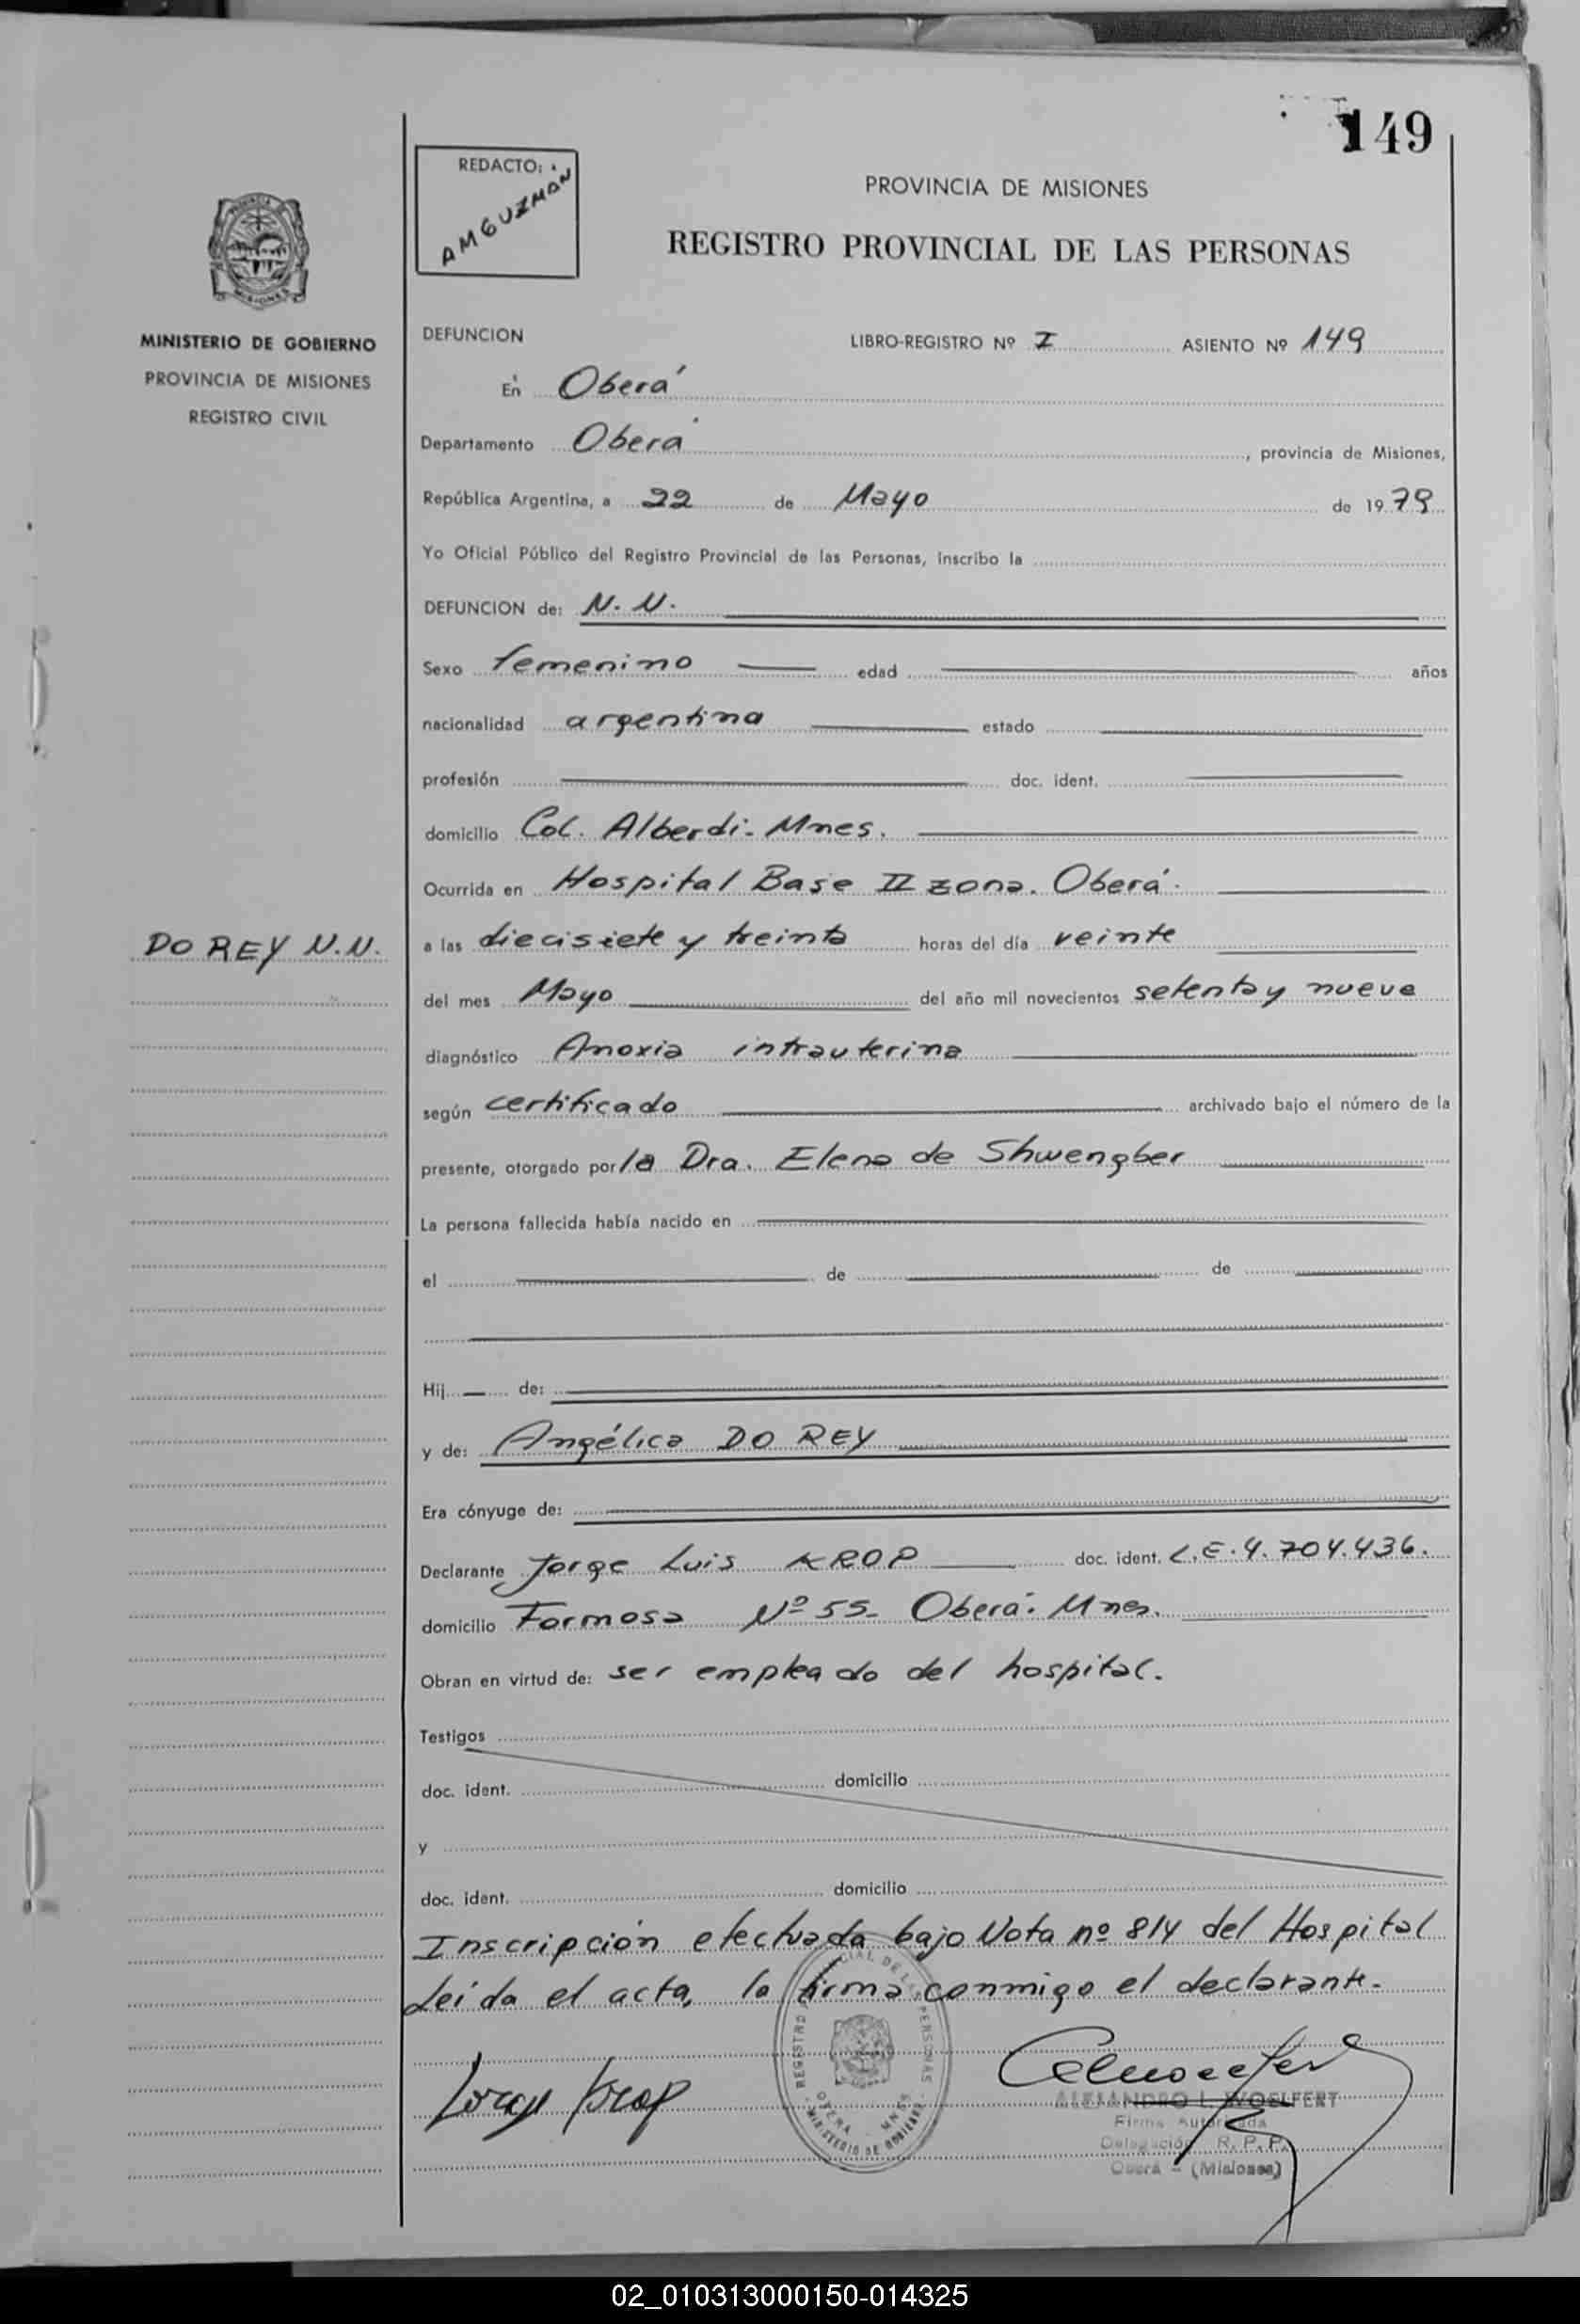 149
REDACTO:
AMGUZMAN
PROVINCIA DE MISIONES
REGISTRO PROVINCIAL DE LAS PERSONAS
MINISTERIO DE GOBIERNO
PROVINCIA DE MISIONES
REGISTRO CIVIL
DEFUNCION LIBRO-REGISTRO Nº I ASIENTO Nº 149
En Oberá
Departamento Oberá, provincia de Misiones,
República Argentina, a 22 de Mayo de 1979
Yo Oficial Público del Registro Provincial de las Personas, inscribo la
DEFUNCION de: N. N.
Sexo femenino edad años
nacionalidad argentina estado
profesión doc. ident.
domicilio Col. Alberdi - Mnes.
Ocurrida en Hospital Base II zona. Oberá.
DO REY N.N.
a las diecisiete y treinta horas del día veinte
del mes Mayo del año mil novecientos setenta y nueve
diagnóstico Anoxia intrauterina
según certificado archivado bajo el número de la
presente, otorgado por la Dra. Elena de Shwengber
La persona fallecida había nacido en
el de de
Hij de:
y de: Angélica DO REY
Era cónyuge de:
Declarante Jorge Luis KROP doc. ident. L.E. 4.704.436.
domicilio Formosa Nº 55- Oberá. Mnes.
Obran en virtud de: ser empleado del hospital.
Testigos
doc. ident. domicilio
y
doc. ident. domicilio
Inscripción efectuada bajo Nota nº 814 del Hospital
Leída el acta, la firma conmigo el declarante-
REGISTRO PROVINCIAL DE LAS PERSONAS
OBERA - MNES
MINISTERIO DE GOBIERNO
Jorge Krop
ALEJANDRO L. WOELFERT
Firma Autorizada
Delegación R. P. P.
Oberá - (Misiones)
02_010313000150-014325